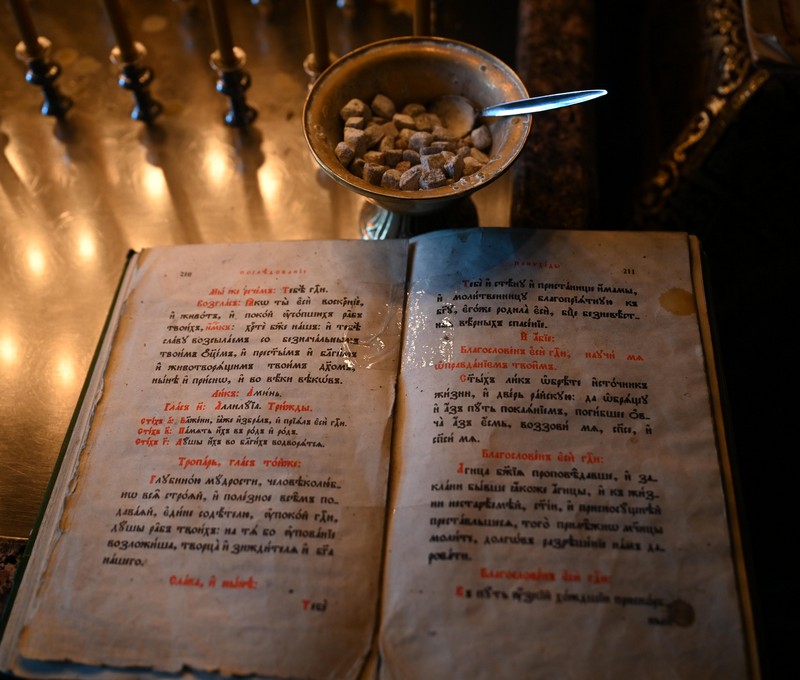 210
послѣдованїе
Мы́ же рце́мъ: Тебѣ̀ гдⷭ҇и.
Возгла́съ: Ꙗ҆́кѡ ты̀ є҆сѝ воскрⷭ҇нїе,
и҆ живо́тъ, и҆ поко́й ᲂу҆со́пшихъ ра̑бъ
твои́хъ, и҆́мⷬ҇къ: хрⷭ҇тѐ бж҃е на́шъ: и҆ тебѣ̀
сла́вꙋ возсыла́емъ со безнача́льнымъ
твои́мъ ѻ҆ц҃е́мъ, и҆ прест҃ы́мъ и҆ бл҃ги́мъ
и҆ животворѧ́щимъ твои́мъ дх҃омъ,
ны́нѣ и҆ при́снѡ, и҆ во вѣ́ки вѣкѡ́въ.
Ли́къ: А҆ми́нь.
Гла́съ и҃: А҆ллилꙋ́їа. Три́жды.
Сті́хъ а҃: Бл҃же́ни, ꙗ҆̀же и҆збра́лъ, и҆ прїѧ́лъ є҆сѝ гдⷭ҇и.
Сті́хъ в҃: Па́мѧть и҆́хъ въ ро́дъ и҆ ро́дъ.
Сті́хъ г҃: Дꙋ́шы и҆́хъ во бл҃ги́хъ водворѧ́тсѧ.
Тропа́рь, гла́съ то́йже:
Глꙋбино́ю мꙋ́дрости, человѣколю́б-
нѡ всѧ̑ стро́ѧй, и҆ поле́зное всѣ̑мъ по-
дава́ѧй, є҆ди́не содѣ́телю, ᲂу҆поко́й гдⷭ҇и,
дꙋ́шы ра̑бъ твои́хъ: на тѧ́ бо ᲂу҆пова́нїе
возложи́ша, творца̀ и҆ зижди́телѧ и҆ бг҃а
на́шего.
Сла́ва, и҆ ны́нѣ:
Тебѐ
211
панихи́ды
Тебѐ и҆ стѣ́нꙋ и҆ приста́нище и҆́мамы,
и҆ моли́твенницꙋ бл҃гопрїѧ́тнꙋю къ
бг҃ꙋ, є҆го́же родила̀ є҆сѝ, бц҃е безневѣ́ст-
наѧ вѣ́рныхъ спасе́нїе.
И҆ а҆́бїе:
Благослове́нъ є҆сѝ гдⷭ҇и, наꙋчи́ мѧ
ѡ҆правда́нїємъ твои̑мъ.
Ст҃ы́хъ ли́къ ѡ҆брѣ́те и҆сто́чникъ
жи́зни, и҆ две́рь ра́йскꙋю: да ѡ҆брѧ́щꙋ
и҆ а҆́зъ пꙋ́ть покаѧ́нїемъ, поги́бшее ѻ҆в-
ча̀ а҆́зъ є҆́смь, воззови́ мѧ, сп҃се, и҆
сп҃си́ мѧ.
Благослове́нъ є҆сѝ гдⷭ҇и:
А҆́гнца бж҃їѧ проповѣ́давше, и҆ за-
кла́ни бы́вше ꙗ҆́коже а҆́гнцы, и҆ къ жи́з-
ни нестарѣ́емѣй, ст҃і́и, и҆ присносꙋ́щнѣй
преста́вльшесѧ, того̀ прилѣ́жнѡ мꙋ́ченицы
моли́те, долгѡ́въ разрѣше́нїе на́мъ да-
рова́ти.
Благослове́нъ є҆сѝ гдⷭ҇и:
Въ пꙋ́ть ᲂу҆́зкїй хо́ждшїи приско́рб-